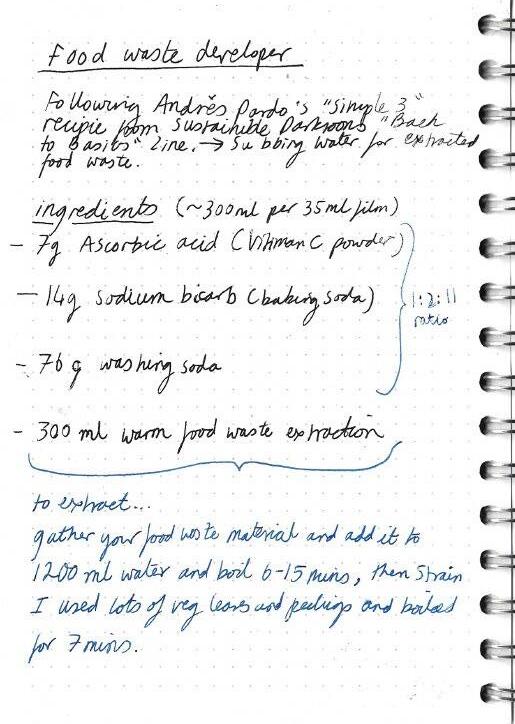 Food waste developer
Following Andrés Pardo's "Simple 3"
recipie from Sustainable Darkrooms "Back
to Basics" Zine. → Subbing water for extracted
food waste.
ingredients (~300ml per 35ml film)
- 7g Ascorbic acid (Vitiman C powder)
- 14g sodium bicarb (baking soda)
1:2:11
ratio
- 76g washing soda
- 300 ml warm food waste extraction
to extract...
gather your food waste material and add it to
1200 ml water and boil 6-15 mins, then strain
I used lots of veg leaves and peelings and boiled
for 7 mins.